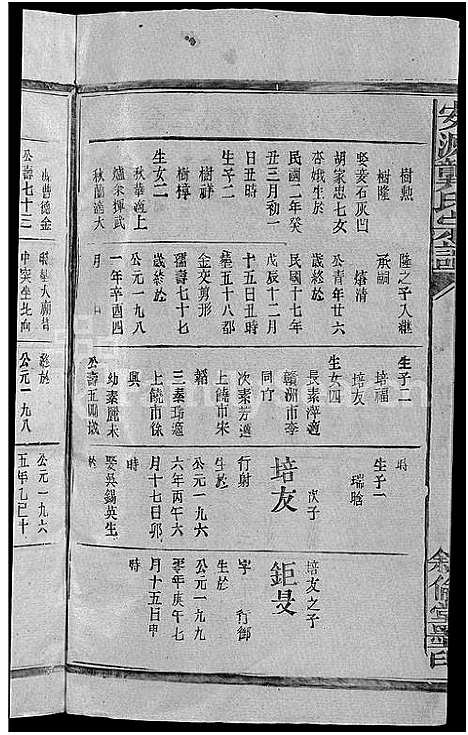 樹勳
樹隆
娶婺石灰凹
胡家忠七女
杏娥生於
民國二年癸
丑三月初一
日丑時
生子二
樹祥
樹梓
生女二
秋華適上
爐朱揮武
秋蘭適大
隆之子入継
承嗣
煥清
公青年廿六
歲終於
民國十七年
戊辰十二月
十五日丑時
塟五十八都
金交剪形
孺壽七十七
歲終於
公元一九八
一年辛酉四
月
生子二
培福
培友
生女四
長素萍適
贛洲市李
同竹
次素芳適
上饒市宋
韜
三素琦適
上饒市徐
興
幼素麗未
公壽五
時
生子一
瑞晗
培友
次子
行射
生於
公元一九六
六年丙午六
月十七日卯
時
娶吳錫英生
於
鉅旻
培友之子
字 行御
生於
公元一九九
零年庚午七
月十五日申
時
曹德金
公壽七十三
中空坐北向
終於
公元一九八
公元一九六
五年乙巳十